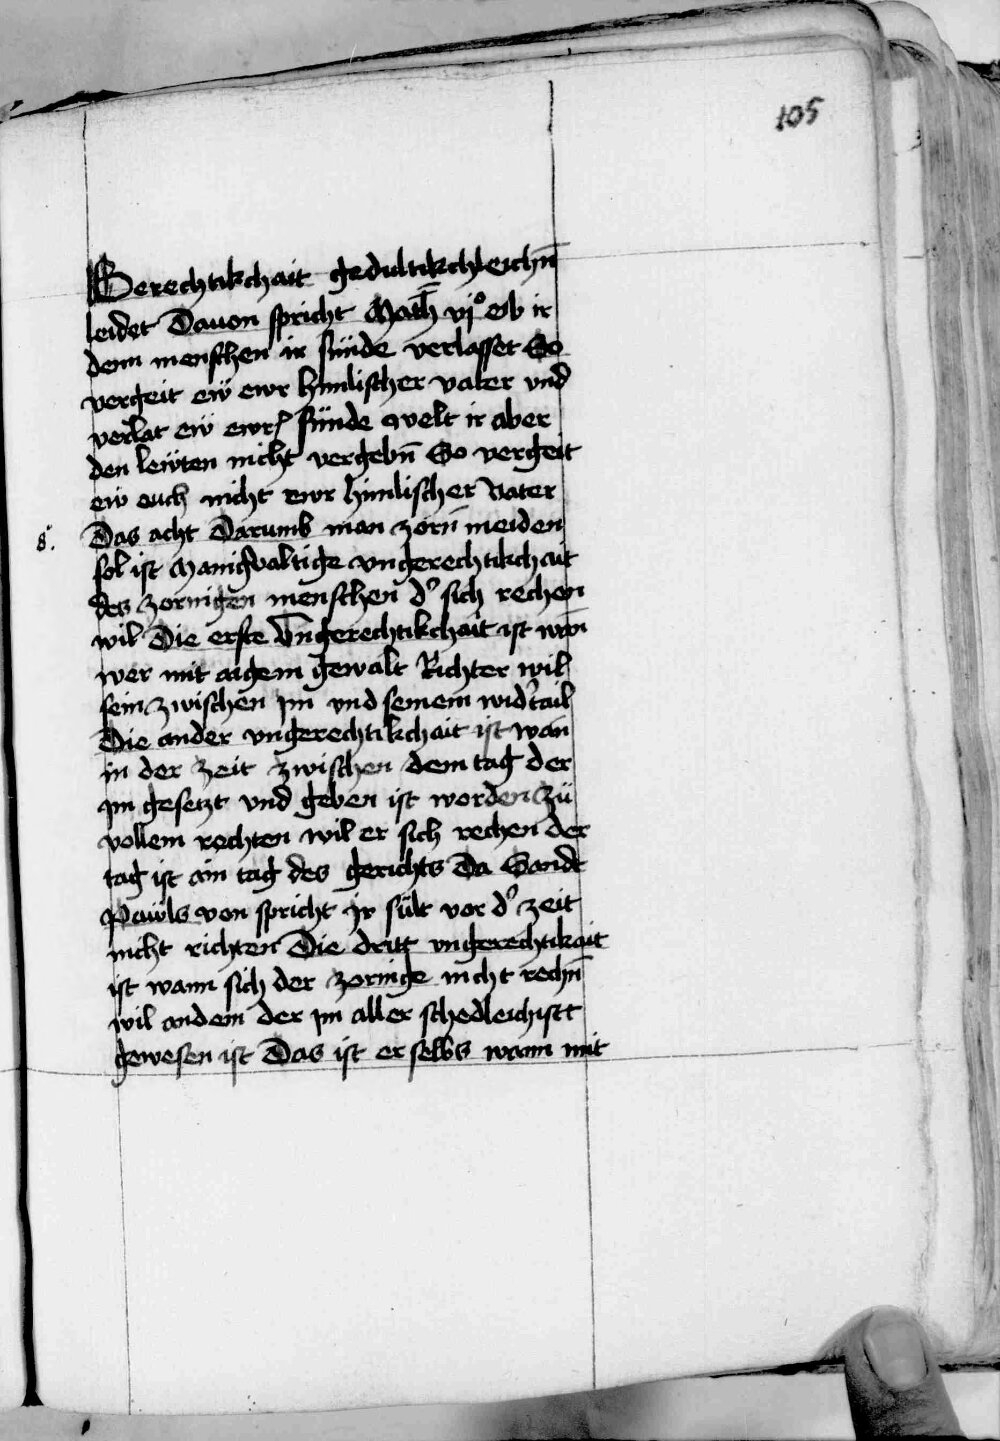 105
Gerechtikchait gedultikchleichn̄
leidet Dauon spricht Math̄ vjº Ob ir
denn menschen ir sünde verlasset So
vergeit eẅ ewr himlischer vater vnd
verlat eẅ ewr sünde Welt ir aber
den lewten nicht vergebn̄ So vergeit
eẅ auch nicht ewr himlischer Vater
8. Das acht Darumb man zorn̄ meiden
sol ist Manigualtige vngerechtikchait
des zornigen menschen d' sich rechen
wil Die erste Vngerechtikchait ist wan̄
wer mit aigem gewalt Richter wil
sein zwischen jm vnd seinem wid'tail
Die ander vngerechtikchait ist wan̄
in der zeit zwischen dem tag der
jm gesetzt vnd geben ist worden zü
vollem rechten wil er sich rechen der
tag ist ain tag des gerichts Da Sandt
Pawls von spricht jr sült vor d' zeit
nicht richten Die dritt vngerechtikait
ist wann sich der zornige nicht rechn̄
wil an dem der jm aller schedleichistt
gewesen ist Das ist er selbs wann mit